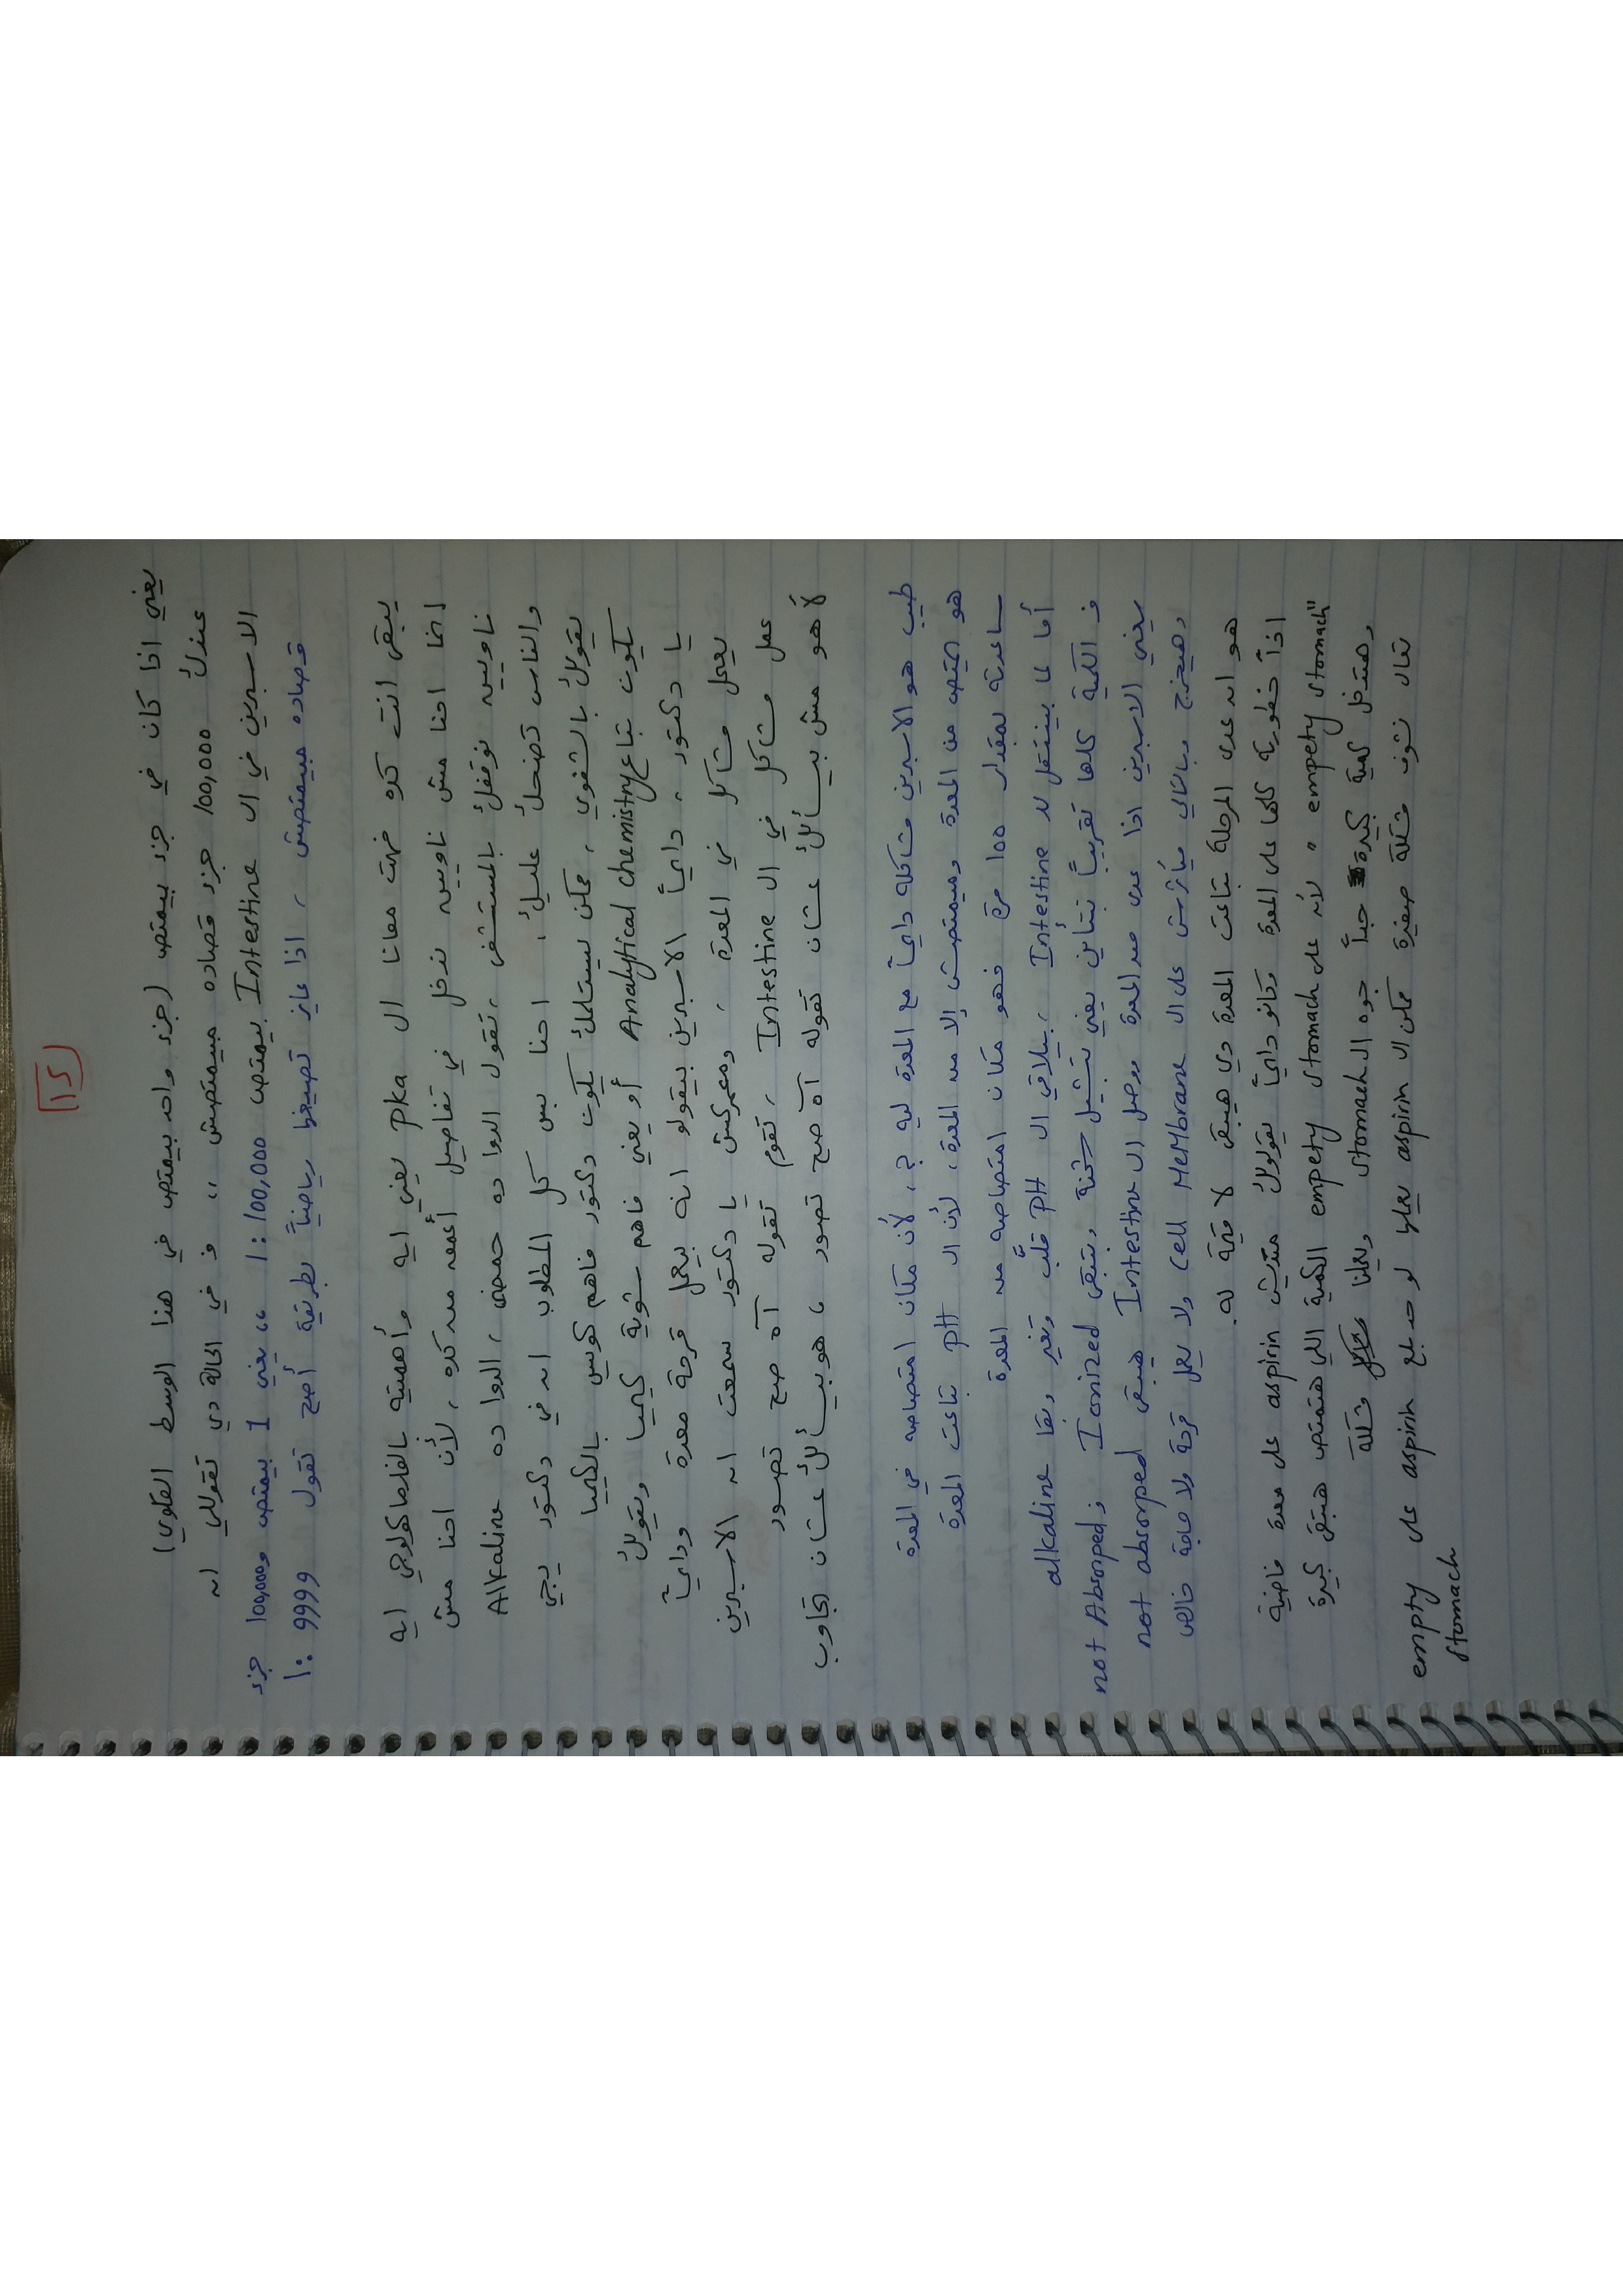 15
يعني اذا كان في جزء بيمتص (جزء واحد بيمتص في هذا الوسط القلوي)
عندك 100,000 جزء قصاده مبيمتصش ،، و في الحالة دي تقوللي ان
الاسبرين في ال Intestine بيمتص 100,000 : 1 ،، يعني 1 بيمتص و 100,000 جزء
قصاده مبيمتصش ، اذا عايز تصيغها رياضياً بطريقة أصح تقول 9999 : 1
يبقى انت كده فهمت معانا ال pka يعني ايه وأهميته بالفارماكولوجي ايه
انما احنا مش ناويين ندخل في تفاصيل أعمق من كده ، لأن احنا مش
ناويين نوقفك بالمستشفى ، تقول الدوا ده حمضي ، الدوا ده Alkaline
والناس تضحك عليك ، احنا بس كل المطلوب ان في دكتور يجي
يقولك بالشفوي ، ممكن يستلمك يكون دكتور فاهم كويس بالكيميا
يكون بتاع Analytical chemistry أو يعني فاهم شوية كيميا ويقولك
يا دكتور ، دايماً الاسبرين بيقولو انه بيعمل قرحة معدة ودايماً
يعمل مشاكل في المعدة ، ومعمركش يا دكتور سمعت ان الاسبرين
عمل مشاكل في ال Intestine ، تقوم تقوله آه صح تصور
لأ هو مش بيسألك عشان تقوله آه صح تصور ، هو بيسألك عشان تجاوب
طيب هو الاسبرين مشاكله دايماً مع المعدة ليه ؟ ، لأن مكان امتصاصه في المعدة
هو اتمتص من المعدة ومبيمتصش إلا من المعدة ، لأن ال pH بتاعت المعدة
ساعدته بمقدار 100 مرة فهو مكان امتصاصه من المعدة
أما لما بينتقل لل Intestine ، بيلاقي ال pH قلّب وتغير وبقا alkaline
فـ الكمية كلها تقريباً بتتأين يعني بتشيل شحنة وبتبقى Ionized و not Absorped
يعني الاسبرين اذا عدى من المعدة ووصل ال Intestine هيبقى not absorped
وهيخرج وبالتالي مبأثرش على ال cell MeMbrane ولا يعمل قرحة ولا حاجة خالص
هو ان عدى المرحلة بتاعت المعدة دي هيبقى لا قيمة له .
اذاً خطورته كلها على المعدة وكانو دايماً يقولولك متدّيش aspirin على معدة فاضية
"empety stomach" لأنه على empety stomach الكمية اللي هتمتص هتبقى كبيرة
وهتدخل كمية كبيرة جداً جوه ال stomach ويعملنا مشكلة
تعال نشوف مشكلة صغيرة ممكن ال aspirin يعملها لو حد بلع aspirin على empty
stomach